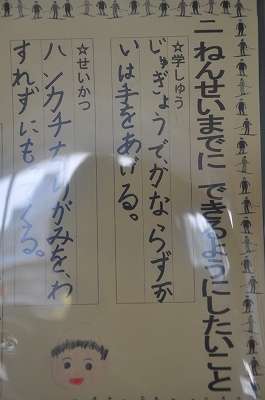 二ねんせいまでに できるようにしたいこと
☆学しゅう
じゅぎょうで、かならずか
いは手をあげる。
☆せいかつ
ハンカチちりがみを、わ
すれずにも くる。